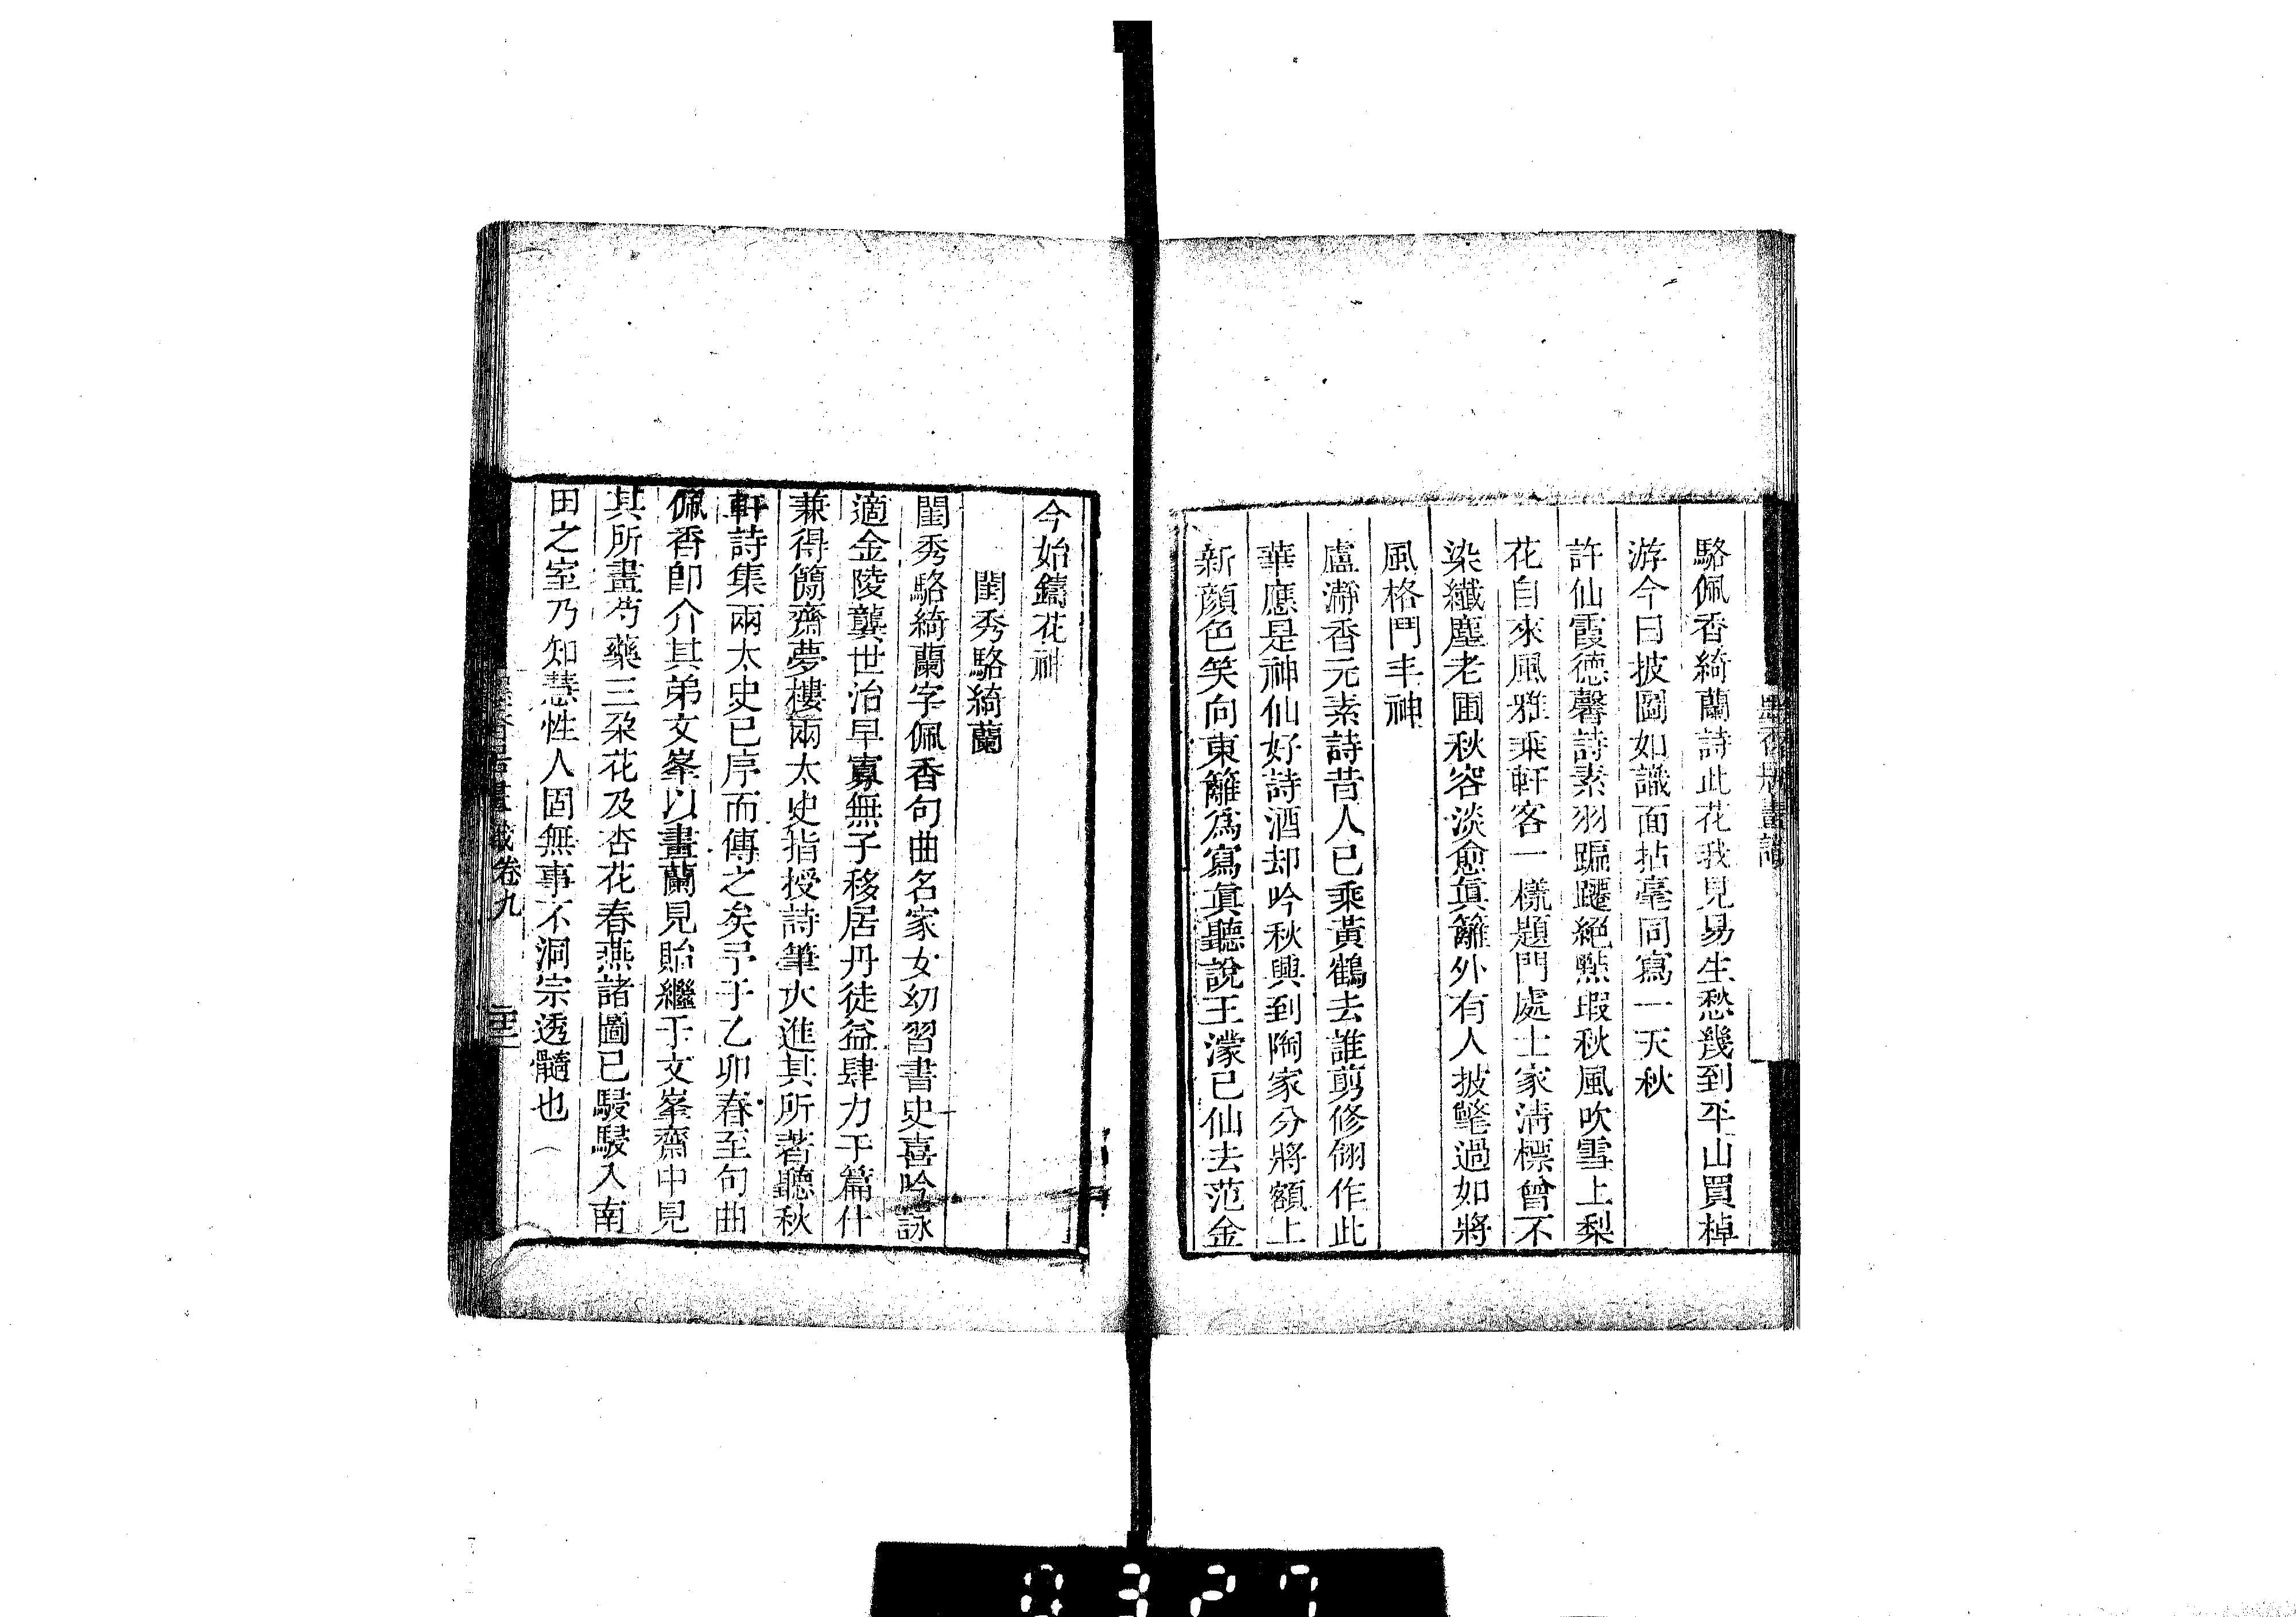 駱佩香綺蘭詩此花我見易生愁幾到平山買棹
游今日披圖如識面拈毫同寫一天秋
許仙霞德馨詩素羽蹁躚絕點瑕秋風吹雪上梨
花自來風雅乘軒客一樣題門處士家淸標曾不
染纖塵老圃秋容淡愈眞籬外有人披氅過如將
風格鬥丰神
盧瀞香元素詩昔人已乘黃鶴去誰剪修翎作此
華應是神仙好詩酒却吟秋興到陶家分將額上
新顏色笑向東籬爲寫眞聽說王濛已仙去范金
今始鑄花神
閨秀駱綺蘭
閨秀駱綺蘭字佩香句曲名家女幼習書史喜吟詠
適金陵龔世治早寡無子移居丹徒益肆力于篇什
兼得簡齋夢樓兩太史指授詩筆大進其所著聽秋
軒詩集兩太史已序而傳之矣予于乙卯春至句曲
佩香卽介其弟文峯以畫蘭見貽繼于文峯齋中見
其所畫芍藥三朶花及杏花春燕諸圖已駸駸入南
田之室乃知慧性人固無事不洞宗透髓也
卷九